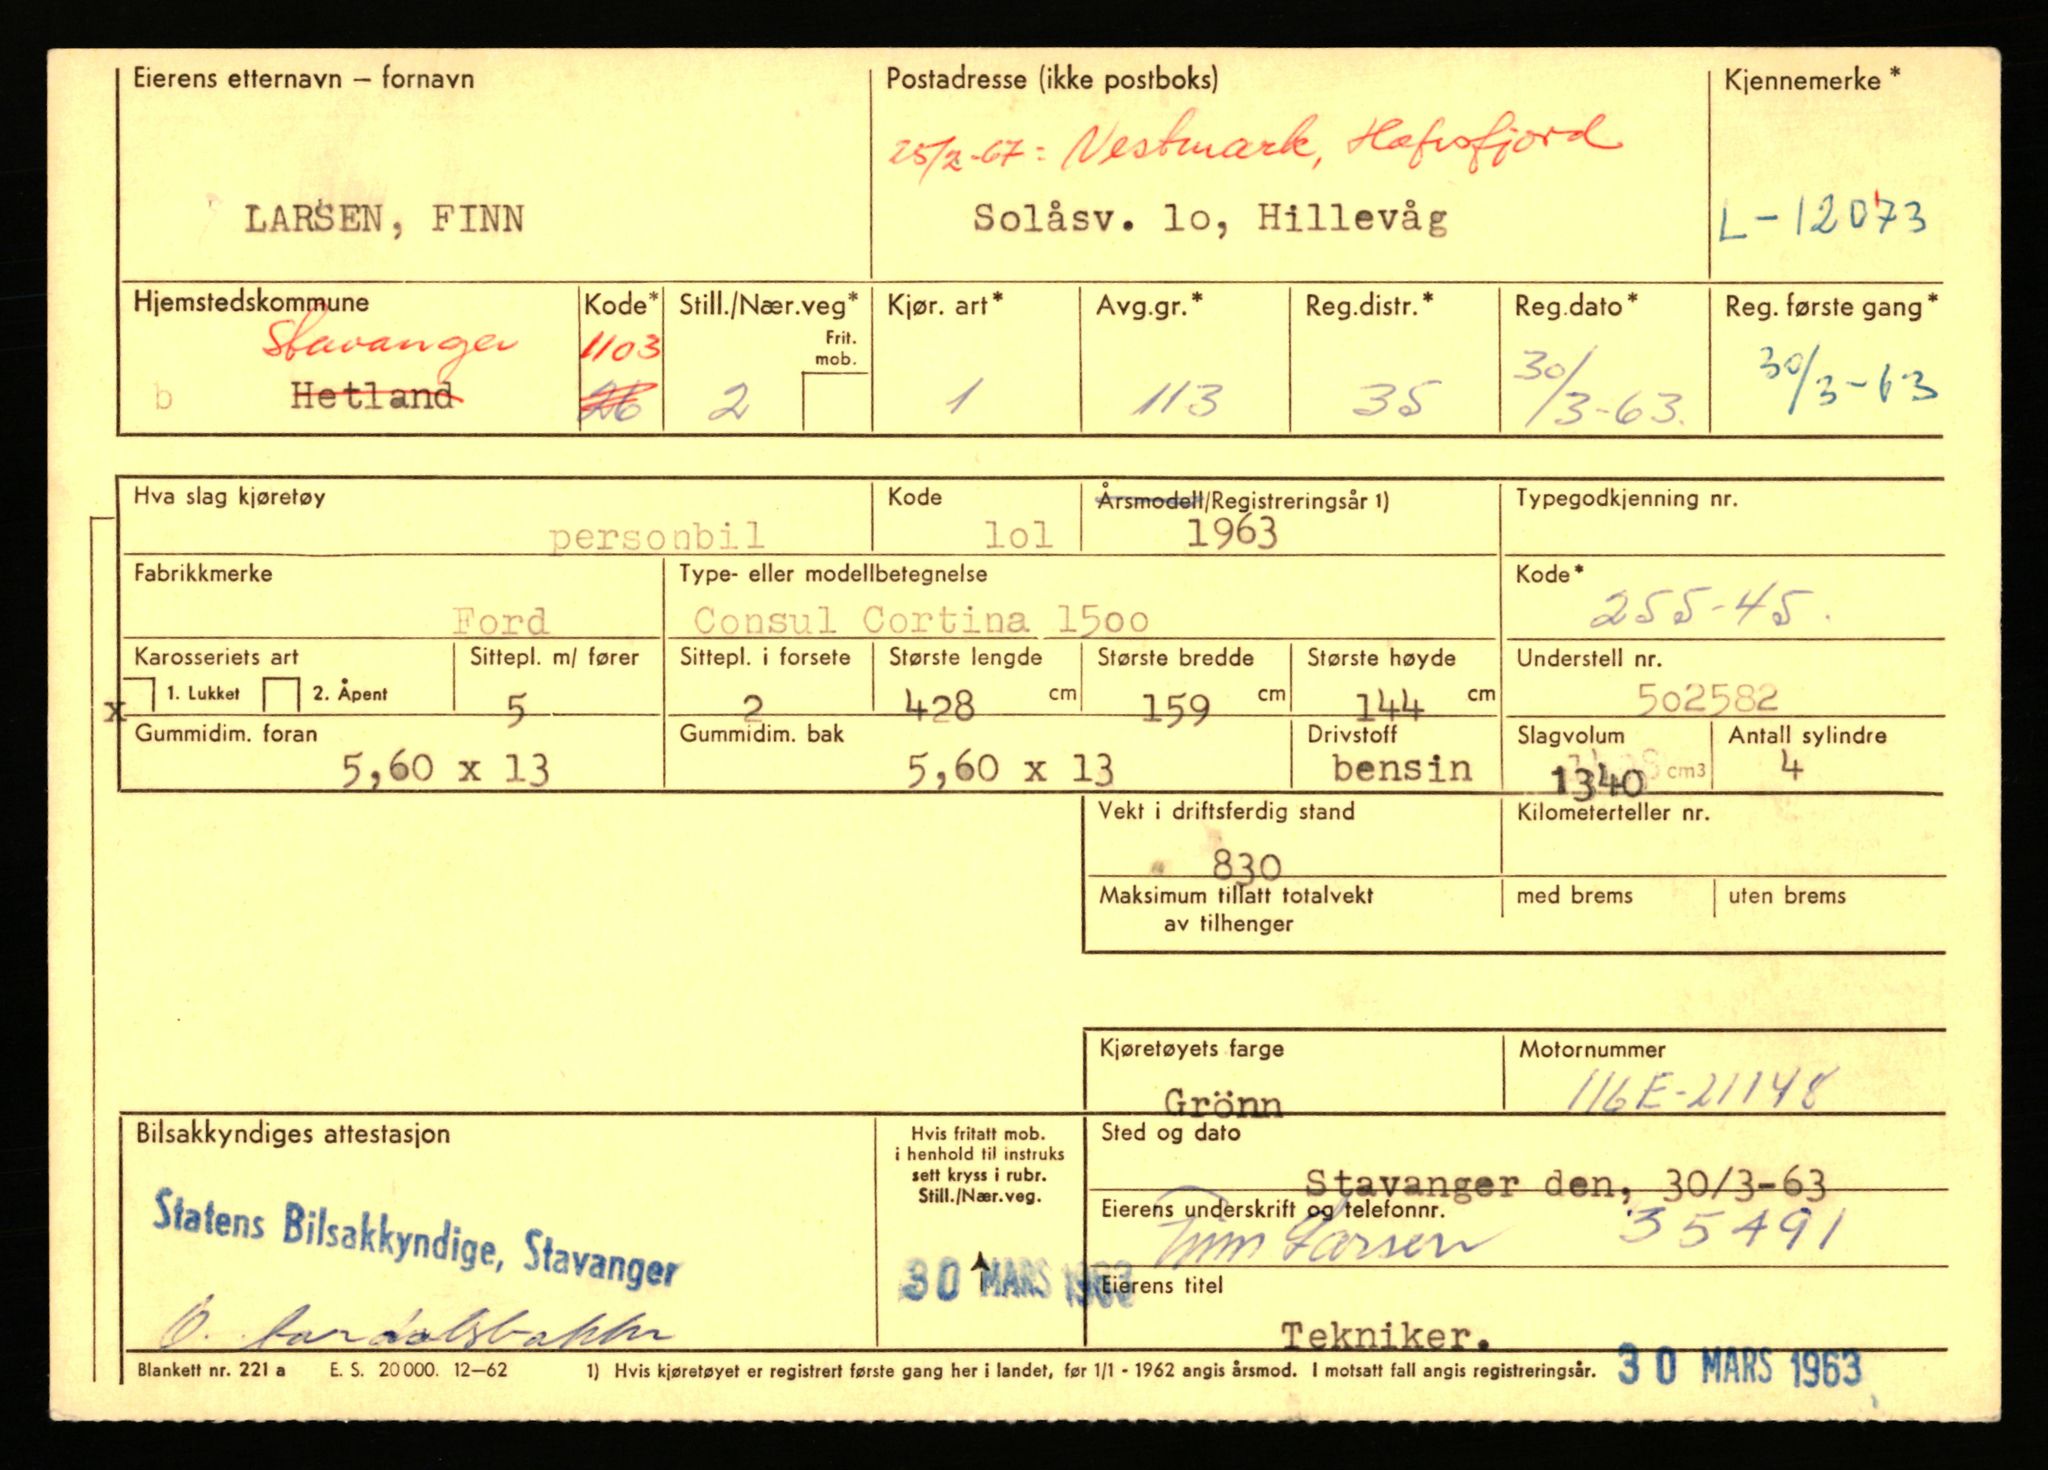 Eierens etternavn – fornavn
Postadresse (ikke postboks)
Kjennemerke*
25/2-67: Vestmark, Hafrsfjord
LARSEN, FINN
Solåsv. lo, Hillevåg
L-12073
Hjemstedskommune
Kode*
Still./Nær.veg*
Kjør. art*
Avg.gr.*
Reg.distr.*
Reg.dato*
Reg. første gang*
Stavanger
1103
Frit.
mob.
b Hetland
26
2
1
113
35
30/3-63.
30/3-63
Hva slag kjøretøy
Kode
Årsmodell/Registreringsår 1)
Typegodkjenning nr.
personbil
lol
1963
Fabrikkmerke
Type- eller modellbetegnelse
Kode*
Ford
Consul Cortina 15oo
255-45.
Karosseriets art
Sittepl. m/ fører
Sittepl. i forsete
Største lengde
Største bredde
Største høyde
Understell nr.
x 1. Lukket 2. Åpent
5
2
428 cm
159 cm
144 cm
502582
Gummidim. foran
Gummidim. bak
Drivstoff
Slagvolum
Antall sylindre
5,60 x 13
5,60 x 13
bensin
1340 cm3
4
Vekt i driftsferdig stand
Kilometerteller nr.
830
Maksimum tillatt totalvekt
av tilhenger
med brems
uten brems
Kjøretøyets farge
Motornummer
Grönn
116E-21148
Bilsakkyndiges attestasjon
Hvis fritatt mob.
i henhold til instruks
sett kryss i rubr.
Still./Nær.veg.
Sted og dato
Stavanger den, 30/3-63
Statens Bilsakkyndige, Stavanger
Eierens underskrift og telefonnr.
Finn Larsen 35491
30 MARS 1963
Eierens titel
Tekniker.
Blankett nr. 221 a E. S. 20 000. 12–62
1) Hvis kjøretøyet er registrert første gang her i landet, før 1/1 - 1962 angis årsmod. I motsatt fall angis registreringsår.
30 MARS 1963